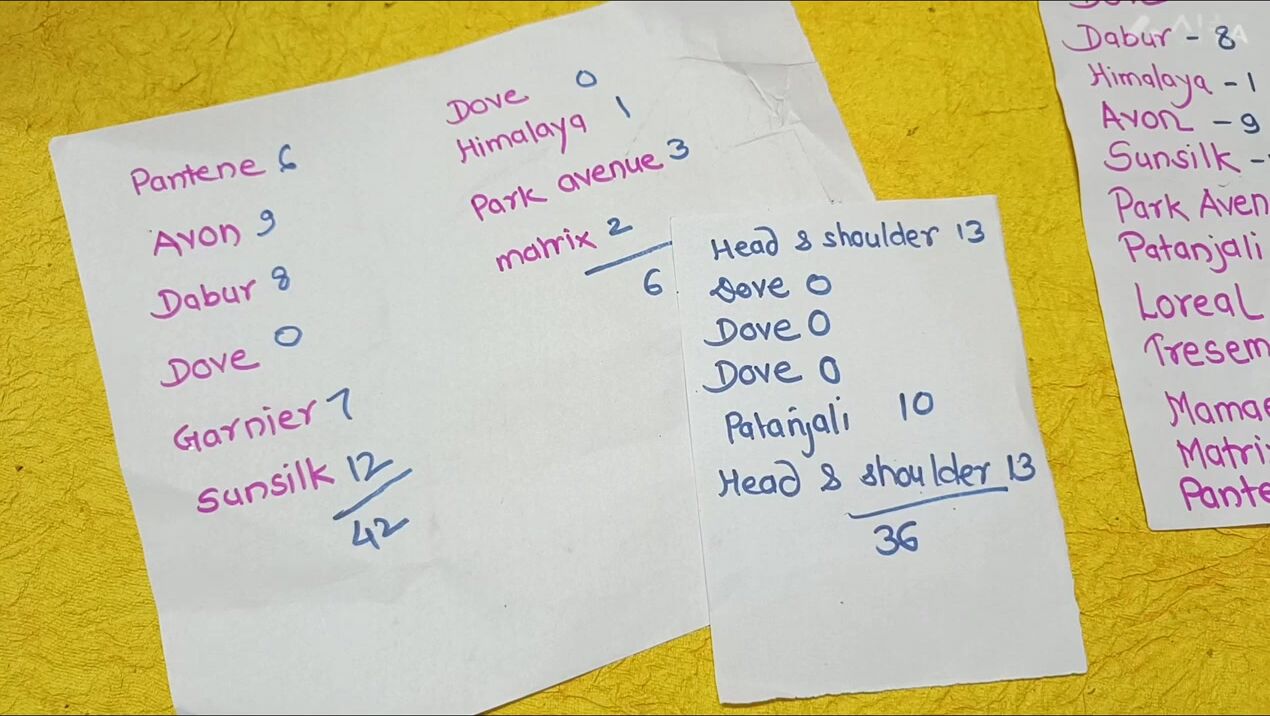 Pantene 6
Avon 9
Dabur 8
Dove 0
Garnier 7
Sunsilk 12
42
Dove 0
Himalaya 1
Park avenue 3
matrix 2
6
Head & shoulder 13
Dove 0
Dove 0
Dove 0
Patanjali 10
Head & shoulder 13
36
Dabur - 8
Himalaya - 1
Avon - 9
Sunsilk -
Park Aven
Patanjali
Loreal
Tresem
Mamae
Matri
Pante